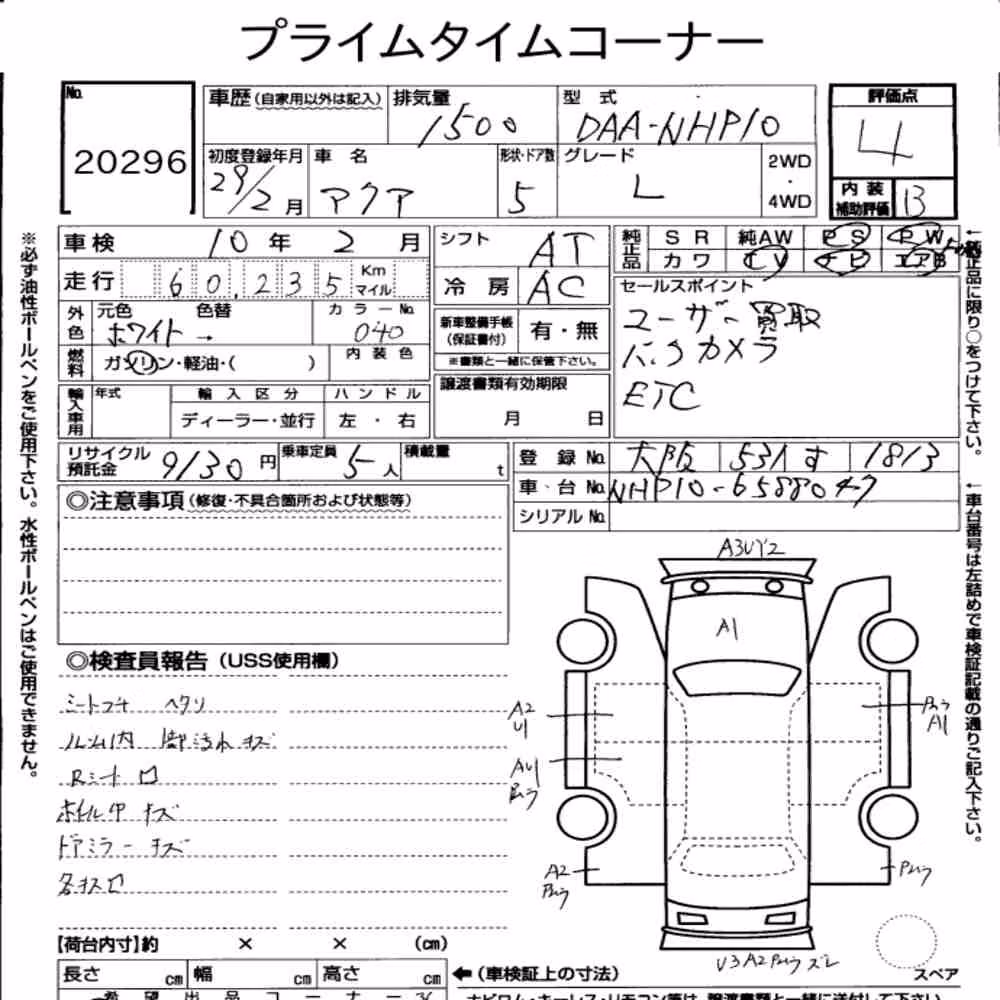 プライムタイムコーナー
No. 20296
車歴(自家用以外は記入) 排気量 1500 型式 DAA-NHP10
初度登録年月 29/2月 車名 アクア 形状・ドア数 5 グレード L 2WD・4WD
評価点 4
内装補助評価 B
車検 10年2月
走行 60,235 Km マイル
外色 元色 ホワイト 色替 → カラーNo. 040
燃料 ガソリン・軽油・( ) 内装色
輸入車用 年式 輸入区分 ディーラー・並行 ハンドル 左・右
シフト AT
冷房 AC
新車整備手帳(保証書付) 有・無
※書類と一緒に保管下さい。
譲渡書類有効期限
月 日
純正品 SR 純AW PS PW
カワ TV ナビ エアB
セールスポイント
ユーザー買取
バックカメラ
ETC
リサイクル預託金 9130円 乗車定員 5人 積載量 t
登録No. 大阪 531 す 1813
車台No. NHP10-6588047
シリアルNo.
◎注意事項(修復・不具合箇所および状態等)
◎検査員報告(USS使用欄)
シートコゲ ヘタリ
ルーム内 汚れ キズ
Rシート ロ
ホイル中 キズ
ドアミラー キズ
各キズロ
A3UY2
A1
A2
U1
AU1
A1
A2
U3A2
【荷台内寸】約 × × (cm)
長さ cm 幅 cm 高さ cm
←(車検証上の寸法)
スペア
希望出品コーナー
※必ず油性ボールペンをご使用下さい。水性ボールペンはご使用できません。
←純正品に限り○をつけて下さい。
←車台番号は左詰めで車検証記載の通りご記入下さい。